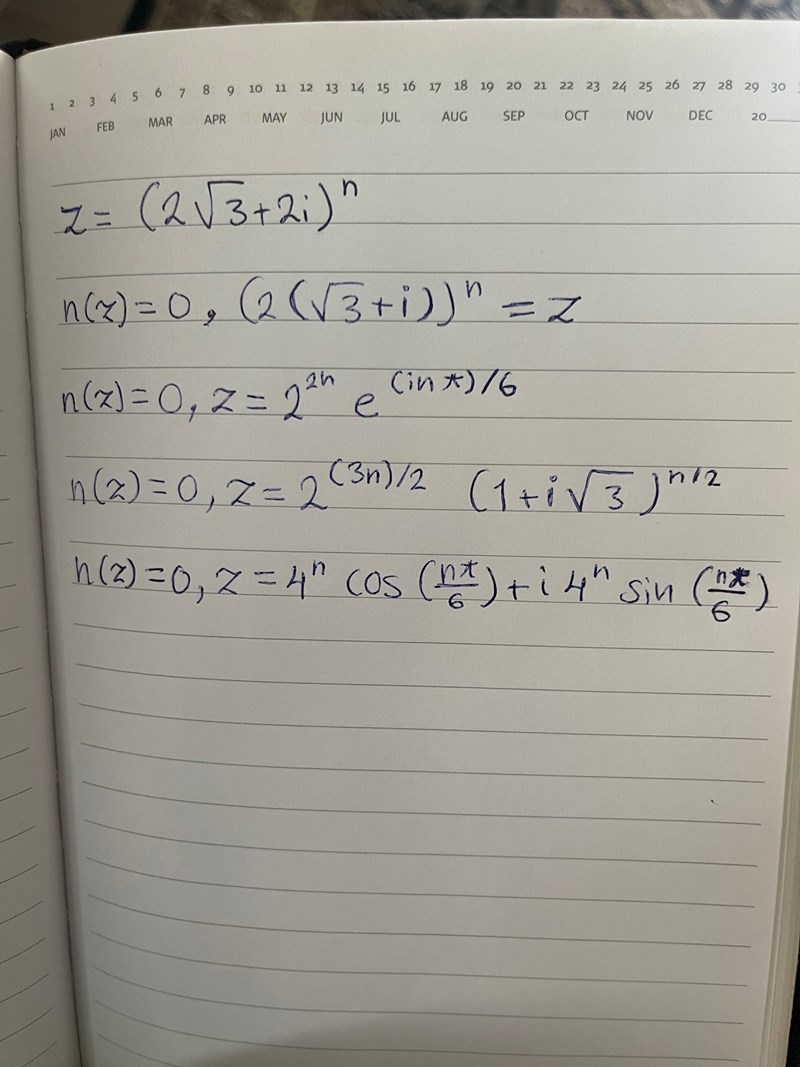 1 2 3 4 5 6 7 8 9 10 11 12 13 14 15 16 17 18 19 20 21 22 23 24 25 26 27 28 29 30
JAN FEB MAR APR MAY JUN JUL AUG SEP OCT NOV DEC 20
z = (2√3+2i)^n
n(z)=0, (2(√3+i))^n = z
n(z)=0, z = 2^2n e^(inπ)/6
n(z)=0, z = 2^(3n)/2 (1+i√3)^n/2
n(z)=0, z = 4^n cos (nπ/6) + i 4^n sin (nπ/6)